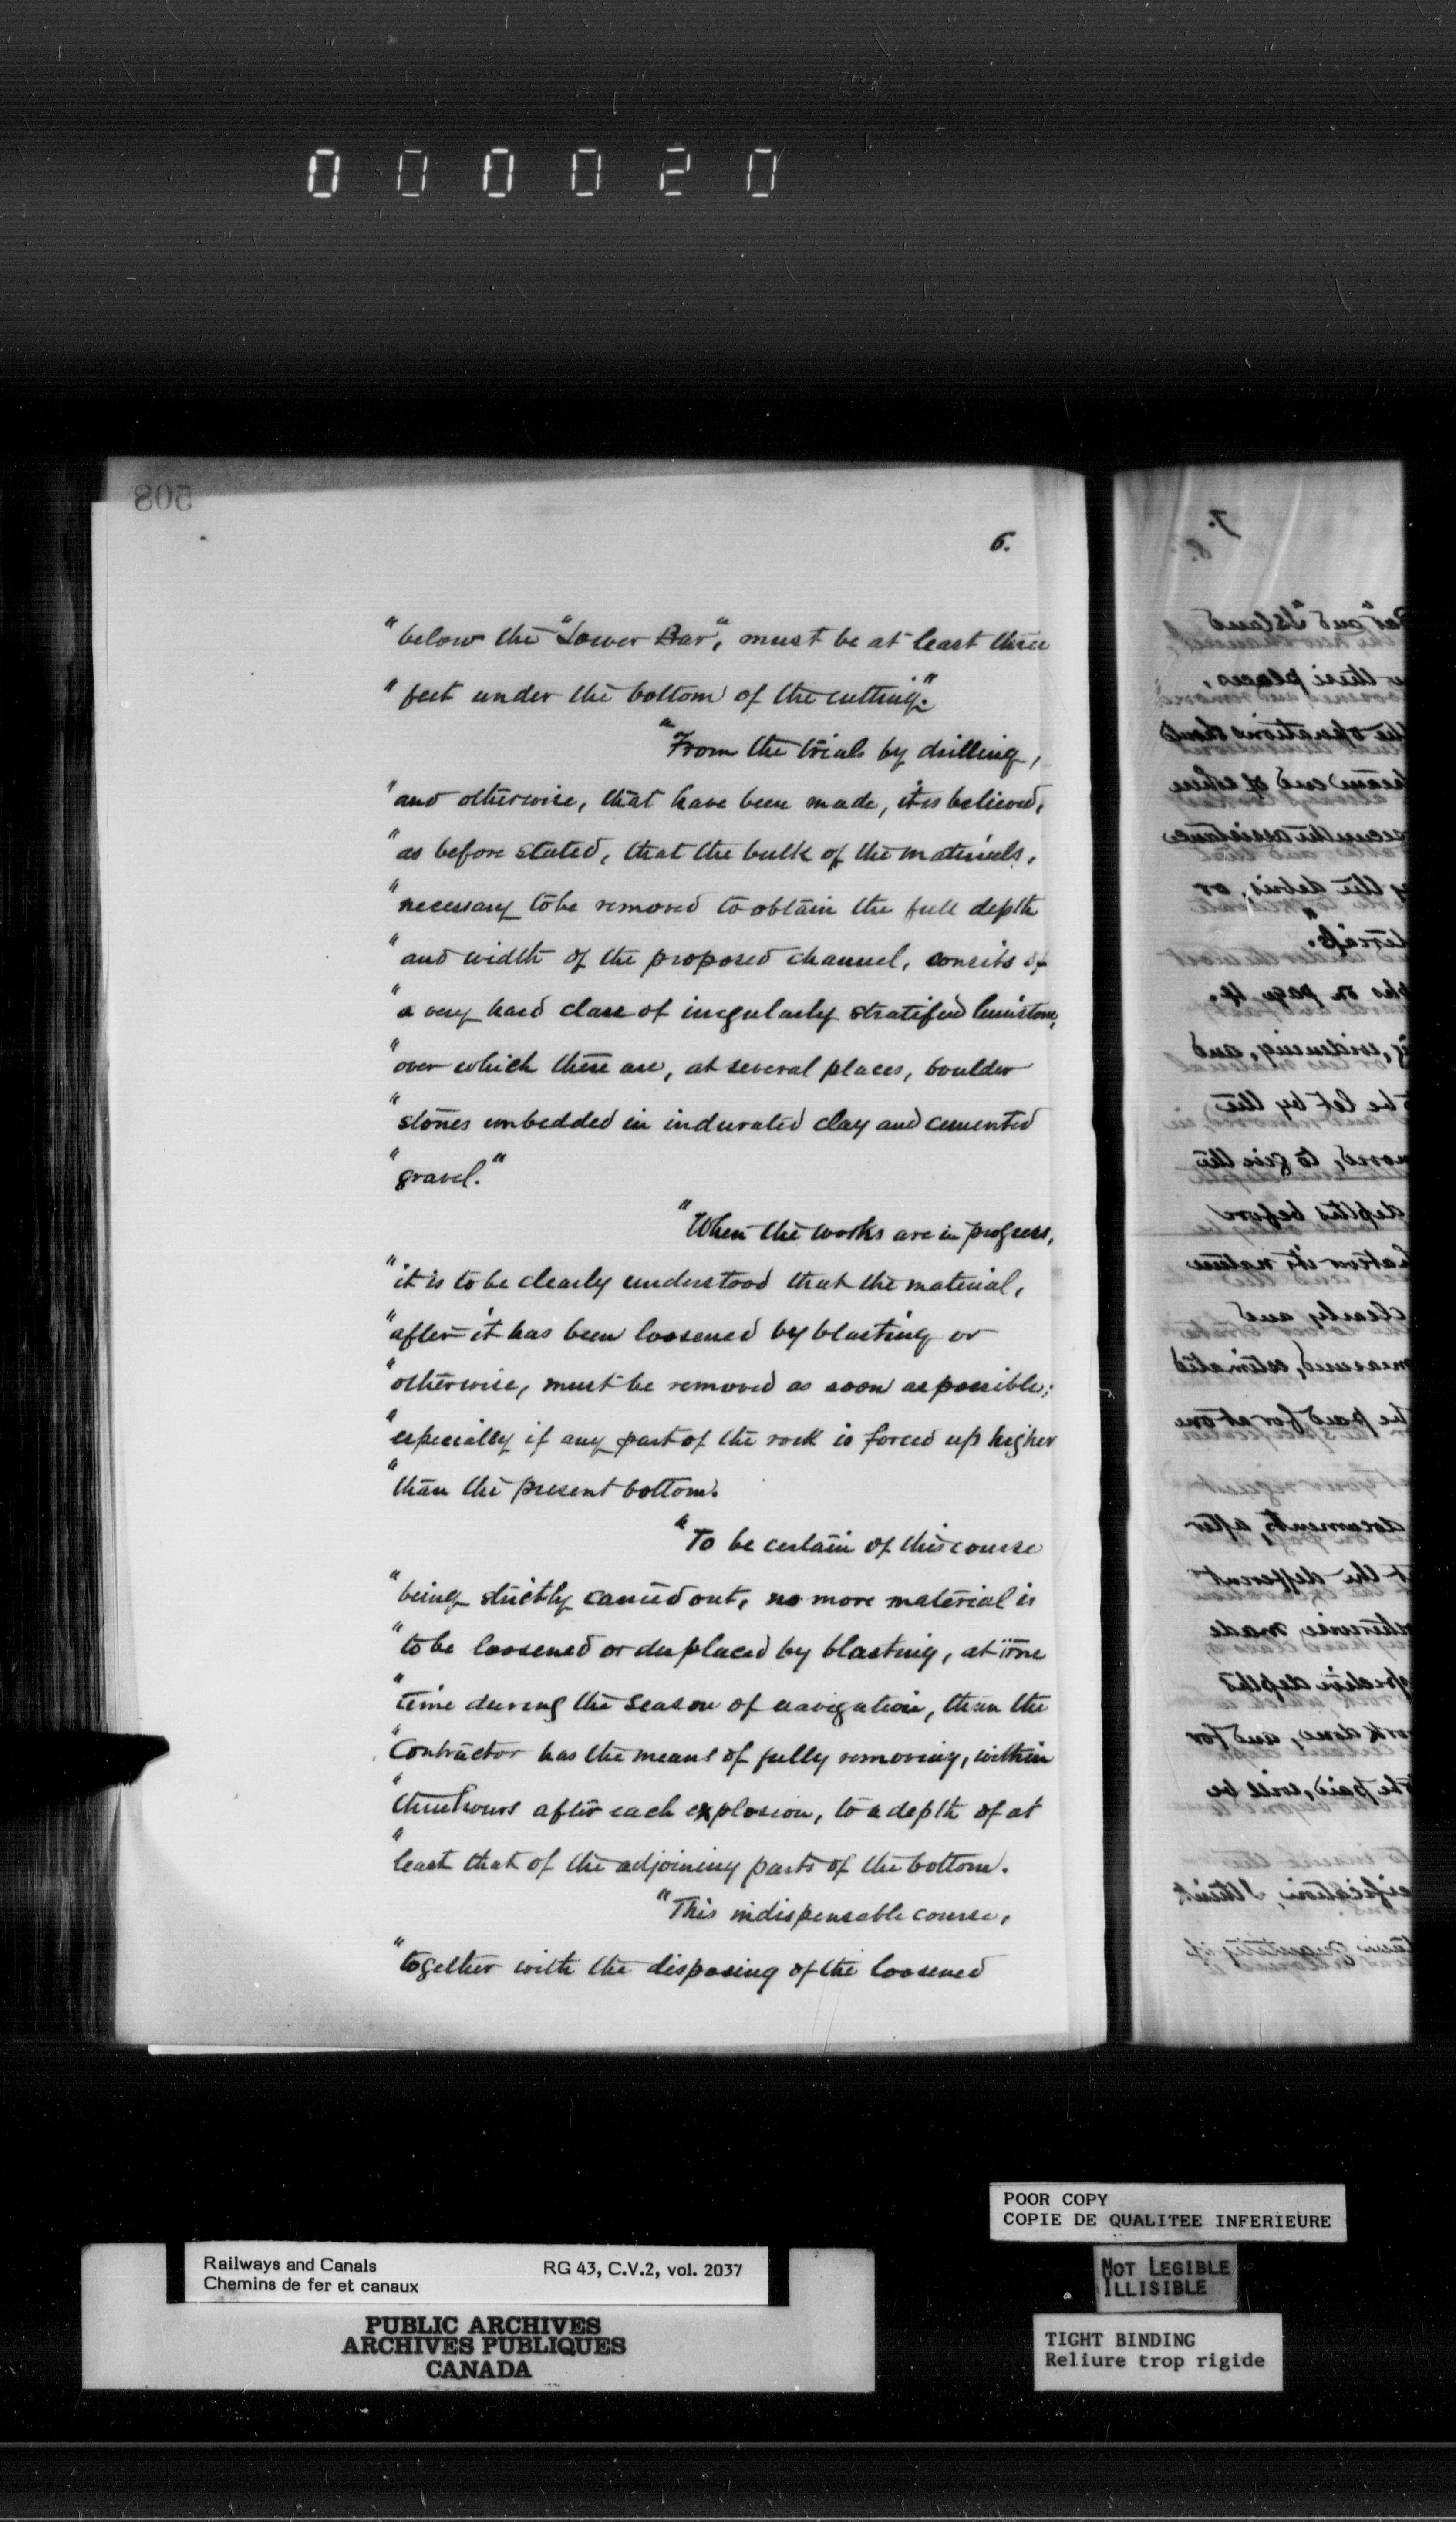 000020
508
6.
"below the "Lower Bar", must be at least three
"feet under the bottom of the cutting."
"From the trials by drilling,
"and otherwise, that have been made, it is believed,
"as before stated, that the bulk of the materials,
"necessary to be removed to obtain the full depth
"and width of the proposed channel, consits of
"a very hard class of irregularly stratified limestone,
"over which there are, at several places, boulder
"stones imbedded in indurated clay and cemented
"gravel."
"When the works are in progress,
"it is to be clearly understood that the material,
"after it has been loosened by blasting or
"otherwise, must be removed as soon as possible;
"especially if any part of the rock is forced up higher
"than the present bottom.
"To be certain of this course
"being strictly carried out, no more material is
"to be loosened or displaced by blasting, at one
"time during the season of navigation, than the
"Contractor has the means of fully removing, within
"three hours after each explosion, to a depth of at
"least that of the adjoining parts of the bottom.
"This indispensable course,
"together with the disposing of the loosened
7.
8.
and "Island
places,
the operations should
end of
the assistance
the debris, or
on page 4.
widening, and
be let by the
to give the
depths before
its nature
clearly and
measured, estimated
be paid for at one
documents, after
the different
otherwise made
depths
work done, and for
be paid, will be
I think
POOR COPY
COPIE DE QUALITEE INFERIEURE
NOT LEGIBLE
ILLISIBLE
TIGHT BINDING
Reliure trop rigide
Railways and Canals
Chemins de fer et canaux
RG 43, C.V.2, vol. 2037
PUBLIC ARCHIVES
ARCHIVES PUBLIQUES
CANADA